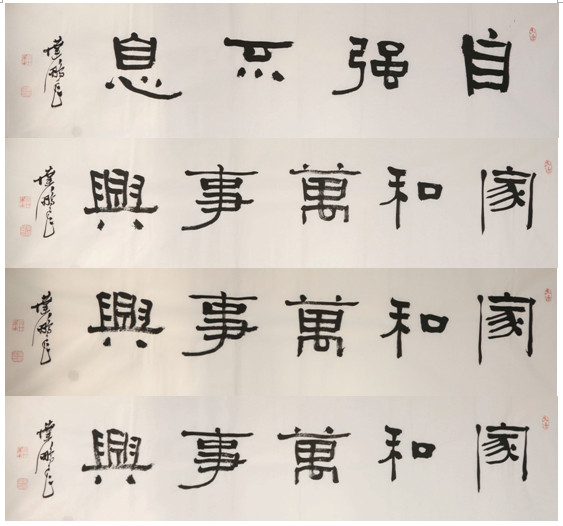 自强不息
家和萬事興
家和萬事興
家和萬事興